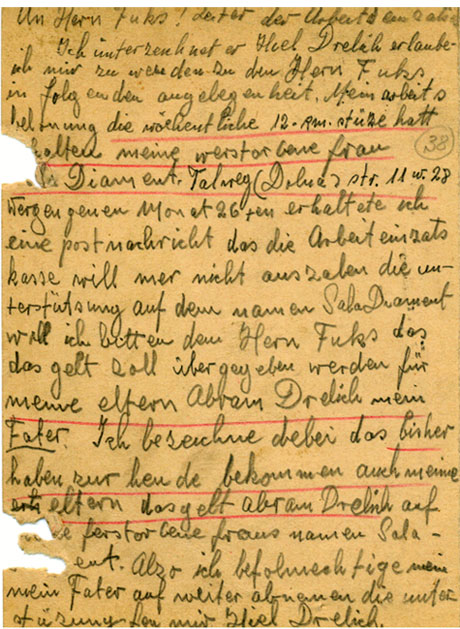 An Herrn Fuks! Leiter der Arbeitseinzats
Ich unterzeichneter Hiel Drelich erlaube
ich mir zu wenden zu den Herrn Fuks,
in folgenden angelegenheit. Mein arbeits
belonung die wöchentliche 12-rm. stüze hatt
halten meine werstorbene frau
38
Diament. Talweg (Dolna) str. 11 w. 28
Wergengenen Monat 26-ten erhaltete ich
eine postnachricht das die Arbeiteinzats
kasse will mer nicht auszalen die un-
terstütsung auf dem namen Sala Diament
will ich bitten dem Herrn Fuks das
das gelt zoll übergegeben werden für
meine elfern Abram Drelich mein
Fater. Ich bezeichne debei das bisher
haben zur hende bekommen auch meine
eltern das gelt Abram Drelich auf
ferstorbene fraus namen Sala-
ent. Alzo ich befolmechtige mein
mein Fater auf weiter abnemen die unter
stüzung fon mir Hiel Drelich.